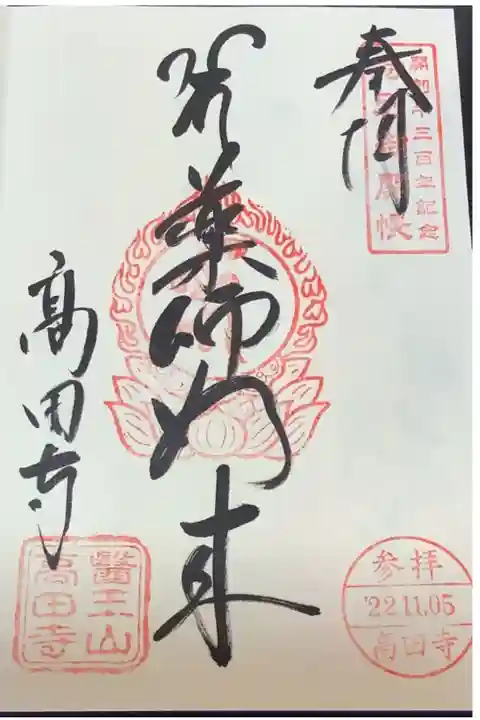 奉拝
開創千三百年記念
御開帳
薬師如来
高田寺
醫王山
高田寺
参拝
'22.11.05
高田寺